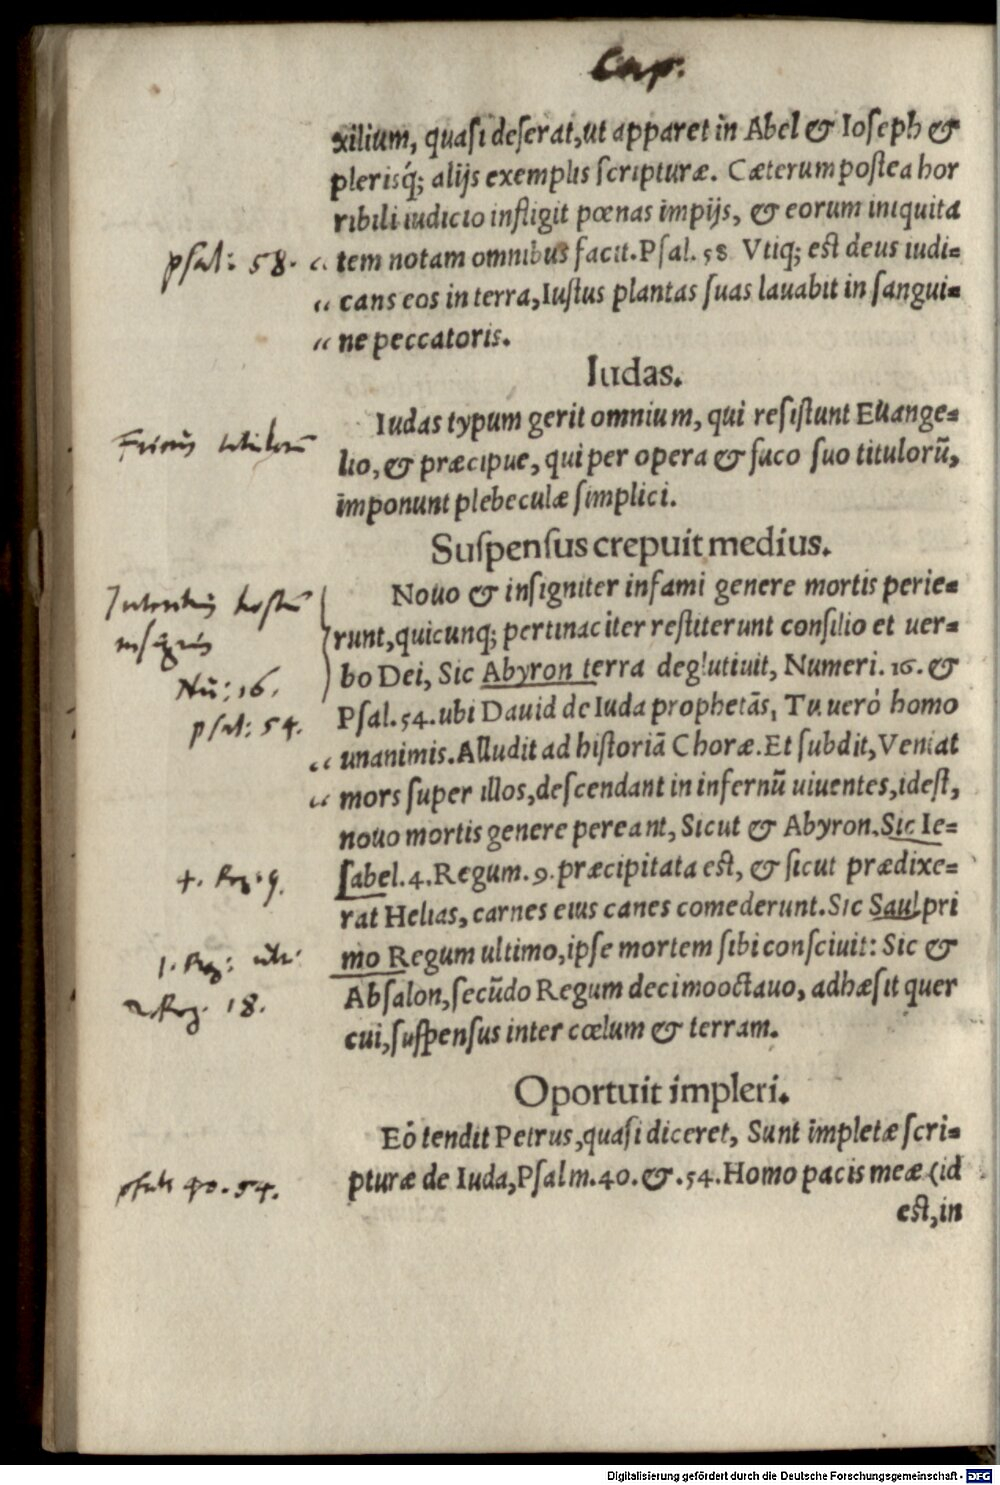 Cap.
xilium, quasi deserat, ut apparet in Abel & Ioseph &
plerisq́; alijs exemplis scripturæ. Cæterum postea hor
ribili iudicio infligit pœnas impijs, & eorum iniquita
psal: 58. „ tem notam omnibus facit. Psal. 58 Vtiq; est deus iudi=
„ cans eos in terra, Iustus plantas suas lauabit in sangui=
„ ne peccatoris.
Iudas.
Iudas typum gerit omnium, qui resistunt Euange=
lio, & præcipue, qui per opera & fuco suo titulorũ,
imponunt plebeculæ simplici.
Suspensus crepuit medius.
Nouo & insigniter infami genere mortis perie=
runt, quicunq; pertinaciter restiterunt consilio et uer=
bo Dei, Sic Abyron terra deglutiuit, Numeri. 16. &
Nũ: 16.
Psal. 54. ubi Dauid de Iuda prophetãs, Tu ueró homo
psal: 54.
„ unanimis. Alludit ad historiã Choræ. Et subdit, Veniat
„ mors super illos, descendant in infernũ uiuentes, idest,
nouo mortis genere pereant, Sicut & Abyron. Sic Ie=
4. Reg. 9. sabel. 4. Regum. 9. præcipitata est, & sicut prædixe=
rat Helias, carnes eius canes comederunt. Sic Saul pri
1. Reg: ult: mo Regum ultimo, ipse mortem sibi consciuit: Sic &
2. Reg. 18. Absalon, secũdo Regum decimooctauo, adhæsit quer
cui, suspensus inter cœlum & terram.
Oportuit impleri.
Eó tendit Petrus, quasi diceret, Sunt impletæ scri=
psal: 40. 54. pturæ de Iuda, Psalm. 40. &. 54. Homo pacis meæ (id
est, in
Digitalisierung gefördert durch die Deutsche Forschungsgemeinschaft - DFG